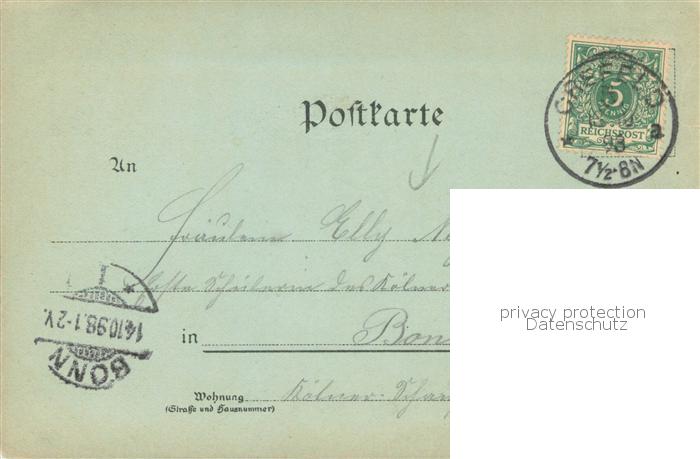 Postkarte
CREFELD
5
PFENNIG
REICHSPOST
98
a
7½-8N
An
Fräulein Elly
des Kölner
in Bon
Wohnung Kölner-
(Straße und Hausnummer)
1
14.10.98.1-2V.
BONN
privacy protection
Datenschutz